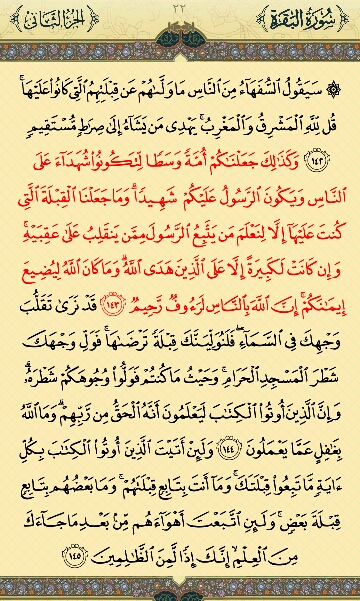 سُورَةُ البَقَرَة ٢٢ الجُزءُ الثَّانی
سَيَقُولُ السُّفَهَآءُ مِنَ النَّاسِ مَا وَلَّىٰهُمْ عَن قِبْلَتِهِمُ الَّتِى كَانُوا۟ عَلَيْهَا ۚ
قُل لِّلَّهِ الْمَشْرِقُ وَالْمَغْرِبُ ۚ يَهْدِى مَن يَشَآءُ إِلَىٰ صِرَٰطٍ مُّسْتَقِيمٍ
﴿١٤٢﴾ وَكَذَٰلِكَ جَعَلْنَٰكُمْ أُمَّةً وَسَطًا لِّتَكُونُوا۟ شُهَدَآءَ عَلَى
النَّاسِ وَيَكُونَ الرَّسُولُ عَلَيْكُمْ شَهِيدًا ۗ وَمَا جَعَلْنَا الْقِبْلَةَ الَّتِى
كُنتَ عَلَيْهَآ إِلَّا لِنَعْلَمَ مَن يَتَّبِعُ الرَّسُولَ مِمَّن يَنقَلِبُ عَلَىٰ عَقِبَيْهِ ۚ
وَإِن كَانَتْ لَكَبِيرَةً إِلَّا عَلَى الَّذِينَ هَدَى اللَّهُ ۗ وَمَا كَانَ اللَّهُ لِيُضِيعَ
إِيمَٰنَكُمْ ۚ إِنَّ اللَّهَ بِالنَّاسِ لَرَءُوفٌ رَّحِيمٌ ﴿١٤٣﴾ قَدْ نَرَىٰ تَقَلُّبَ
وَجْهِكَ فِى السَّمَآءِ ۖ فَلَنُوَلِّيَنَّكَ قِبْلَةً تَرْضَىٰهَا ۚ فَوَلِّ وَجْهَكَ
شَطْرَ الْمَسْجِدِ الْحَرَامِ ۚ وَحَيْثُ مَا كُنتُمْ فَوَلُّوا۟ وُجُوهَكُمْ شَطْرَهُۥ ۗ
وَإِنَّ الَّذِينَ أُوتُوا۟ الْكِتَٰبَ لَيَعْلَمُونَ أَنَّهُ الْحَقُّ مِن رَّبِّهِمْ ۗ وَمَا اللَّهُ
بِغَٰفِلٍ عَمَّا يَعْمَلُونَ ﴿١٤٤﴾ وَلَئِنْ أَتَيْتَ الَّذِينَ أُوتُوا۟ الْكِتَٰبَ بِكُلِّ
ءَايَةٍ مَّا تَبِعُوا۟ قِبْلَتَكَ ۚ وَمَآ أَنتَ بِتَابِعٍ قِبْلَتَهُمْ ۚ وَمَا بَعْضُهُم بِتَابِعٍ
قِبْلَةَ بَعْضٍ ۚ وَلَئِنِ اتَّبَعْتَ أَهْوَآءَهُم مِّنۢ بَعْدِ مَا جَآءَكَ
مِنَ الْعِلْمِ ۙ إِنَّكَ إِذًا لَّمِنَ الظَّٰلِمِينَ ﴿١٤٥﴾